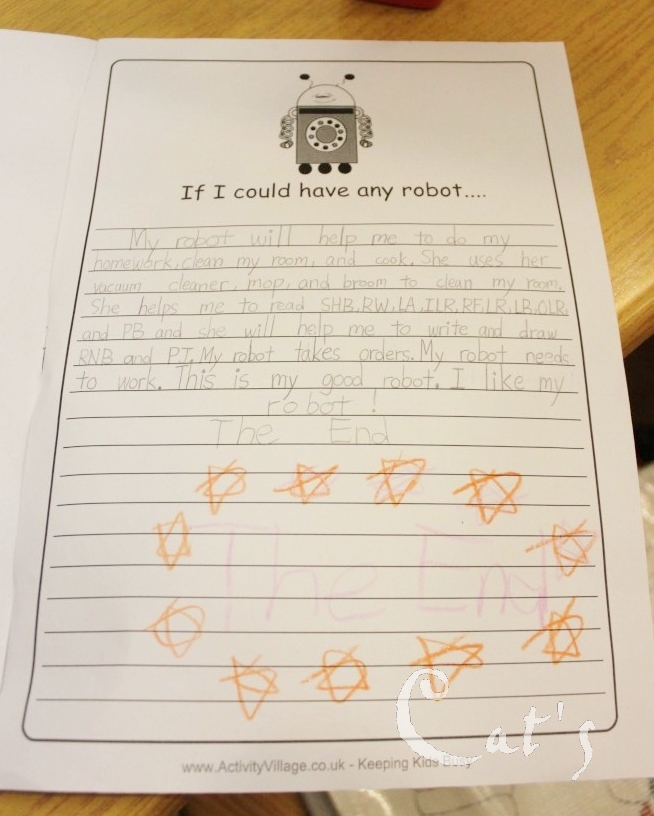 If I could have any robot....
My robot will help me to do my
homework, clean my room, and cook. She uses her
vacuum cleaner, mop, and broom to clean my room.
She helps me to read SHB, RW, LA, ILR, RF, LR, LB, OLR,
and PB and she will help me to write and draw
RNB and PJ. My robot takes orders. My robot needs
to work. This is my good robot. I like my
robot!
The End
The End
Cat's
www.ActivityVillage.co.uk - Keeping Kids Busy